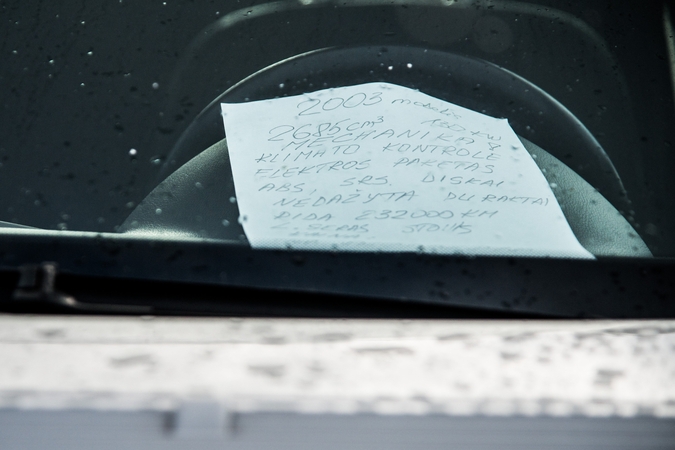 2003 modelis
2685cm³ 130 KW
MECHANIKA
KLIMATO KONTROLE
ELEKTROS PAKETAS
ABS, SRS, DISKAI
NEDAŽYTA DU RAKTAI
RIDA 232000 KM